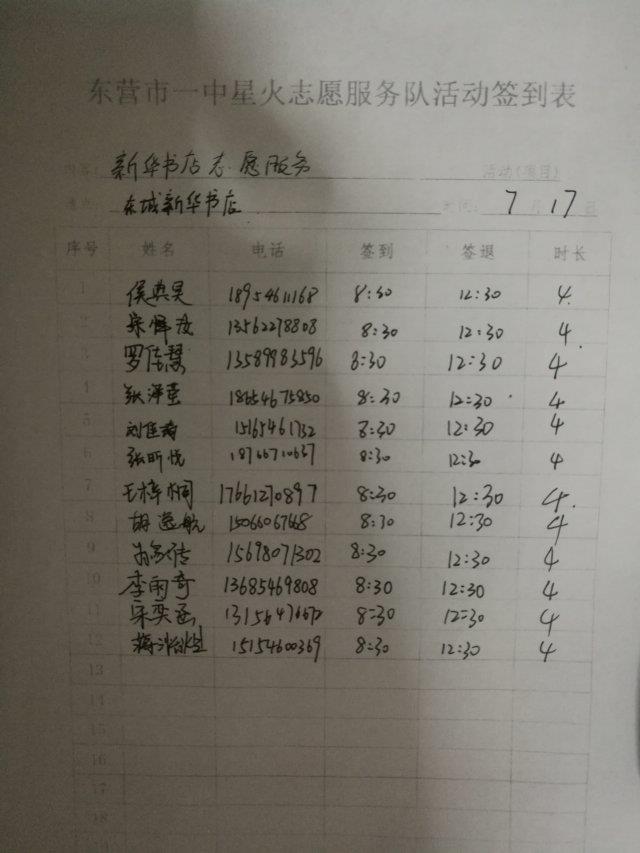 东营市一中星火志愿服务队活动签到表
新华书店志愿服务 活动(项目)
东城新华书店 7月17日
序号 姓名 电话 签到 签退 时长
1 侯典昊 18954611168 8:30 12:30 4
2 13562278808 8:30 12:30 4
3 罗佳慧 13589983596 8:30 12:30 4
4 张泽萱 18654675850 8:30 12:30 4
5 刘佳 15165461732 8:30 12:30 4
6 张昕悦 8:30 12:30 4
7 王梓桐 17661270897 8:30 12:30 4
8 胡逸航 8:30 12:30 4
9 15698071302 8:30 12:30 4
10 李雨奇 13685469808 8:30 12:30 4
11 宋奕函 8:30 12:30 4
12 蒋 15154600369 8:30 12:30 4
13
14
15
16
17
18
19